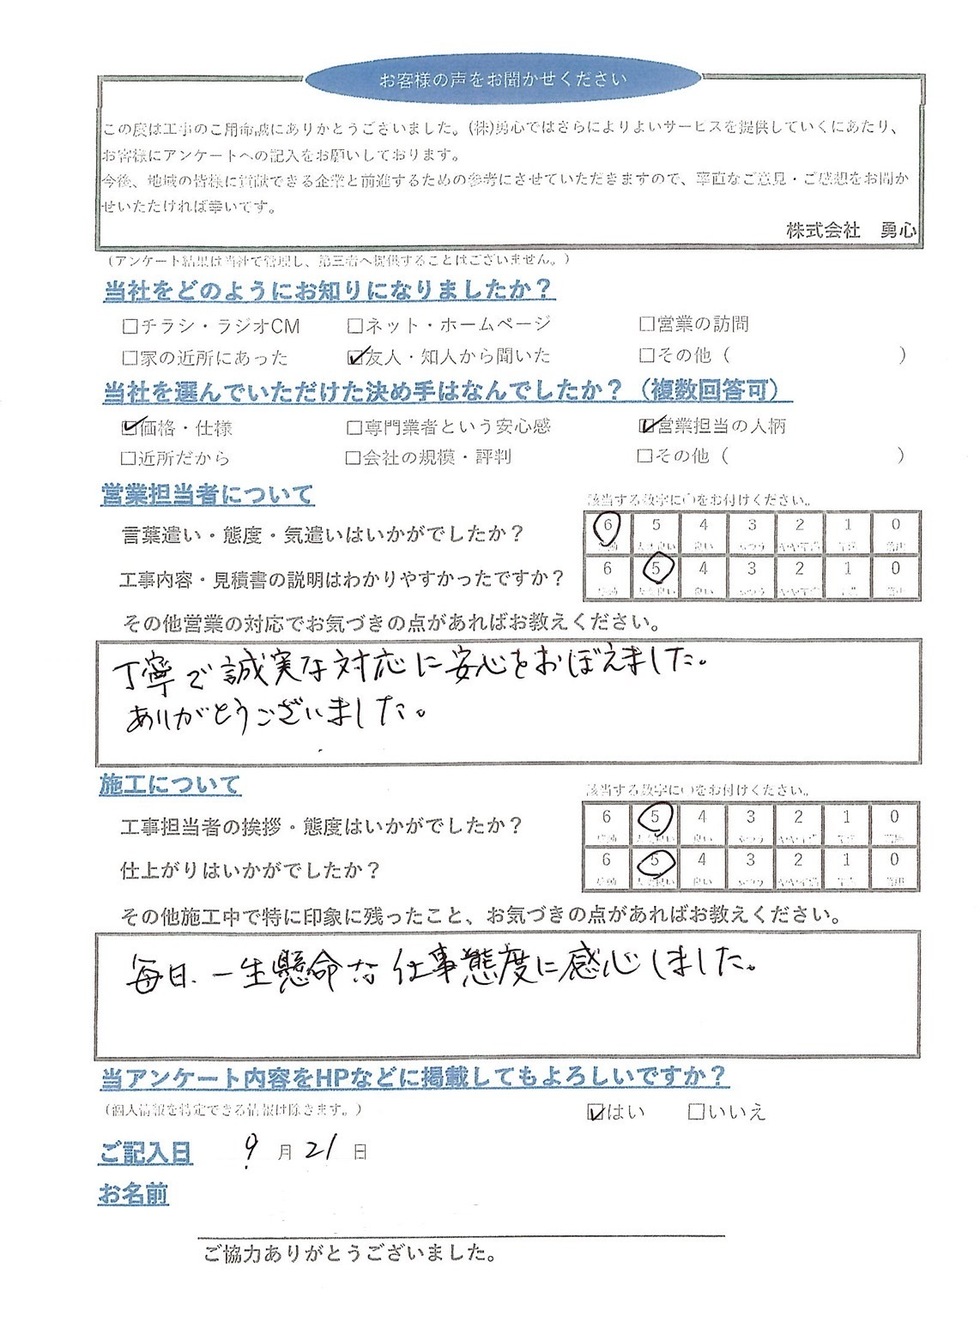 お客様の声をお聞かせください
この度は工事のご用命誠にありがとうございました。(株)勇心ではさらによりよいサービスを提供していくにあたり、
お客様にアンケートへの記入をお願いしております。
今後、地域の皆様に貢献できる企業と前進するための参考にさせていただきますので、率直なご意見・ご感想をお聞か
せいただければ幸いです。
株式会社　勇心
(アンケート結果は当社で管理し、第三者へ提供することはございません。)
当社をどのようにお知りになりましたか？
□チラシ・ラジオCM □ネット・ホームページ □営業の訪問
□家の近所にあった ☑友人・知人から聞いた □その他（　　　　　　　　）
当社を選んでいただけた決め手はなんでしたか？（複数回答可）
☑価格・仕様 □専門業者という安心感 ☑営業担当の人柄
□近所だから □会社の規模・評判 □その他（　　　　　　　　）
営業担当者について
該当する数字に〇をお付けください。
言葉遣い・態度・気遣いはいかがでしたか？ 6 5 4 3 2 1 0
良い ふつう
工事内容・見積書の説明はわかりやすかったですか？ 6 5 4 3 2 1 0
良い ふつう
その他営業の対応でお気づきの点があればお教えください。
丁寧で誠実な対応に安心をおぼえました。
ありがとうございました。
施工について
該当する数字に〇をお付けください。
工事担当者の挨拶・態度はいかがでしたか？ 6 5 4 3 2 1 0
良い ふつう
仕上がりはいかがでしたか？ 6 5 4 3 2 1 0
良い ふつう
その他施工中で特に印象に残ったこと、お気づきの点があればお教えください。
毎日、一生懸命な仕事態度に感心しました。
当アンケート内容をHPなどに掲載してもよろしいですか？
(個人情報を特定できる情報は除きます。) ☑はい □いいえ
ご記入日 9月21日
お名前
ご協力ありがとうございました。